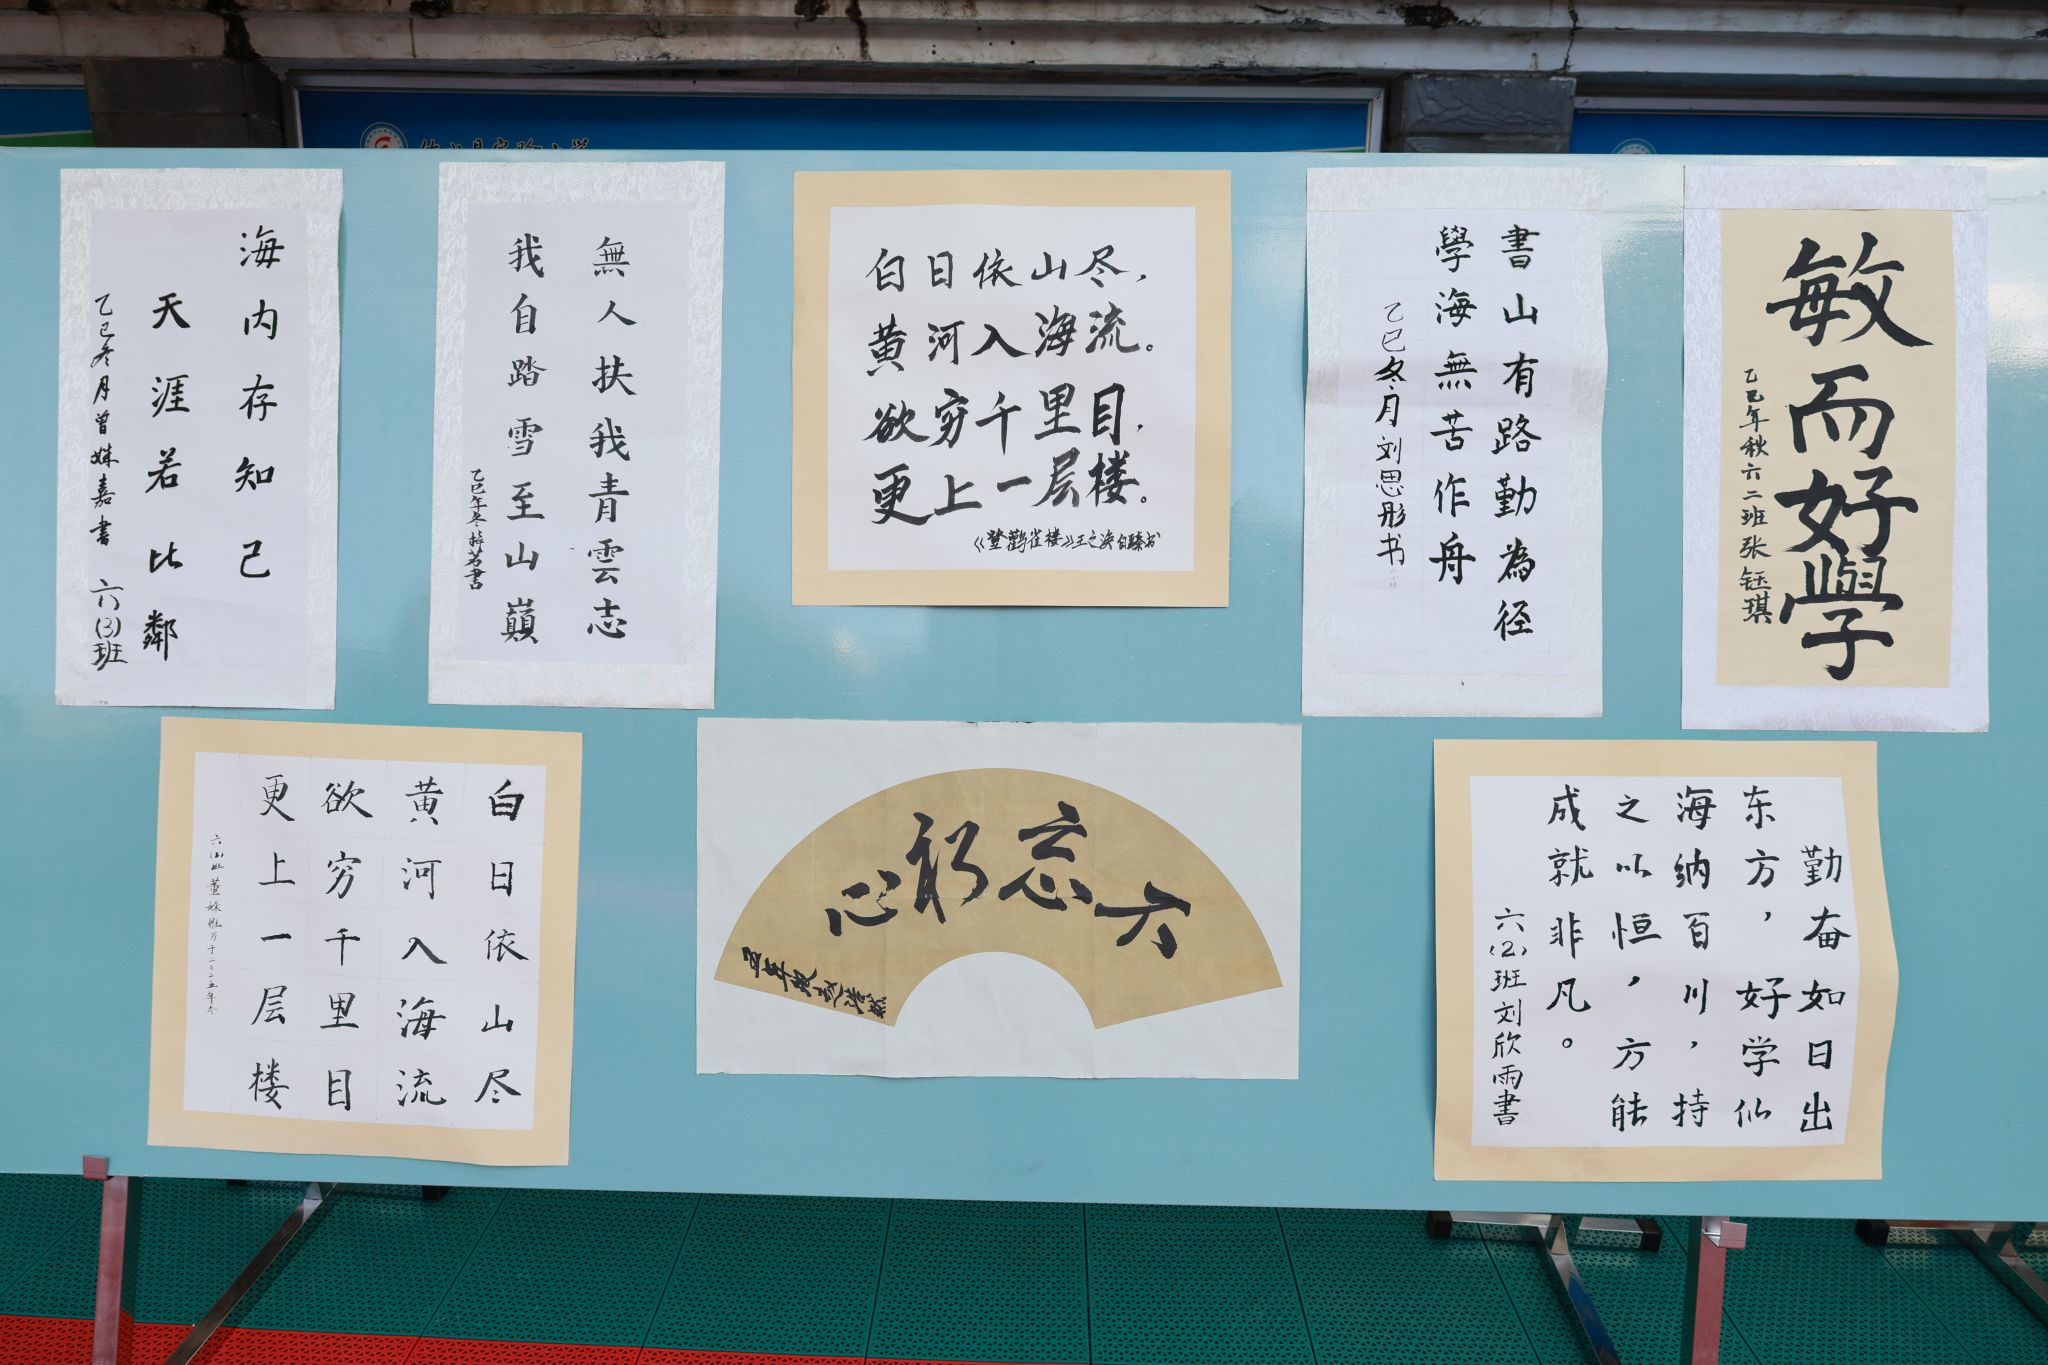 海内存知己
天涯若比鄰
乙巳冬月曾姝嘉書
六(3)班
無人扶我青雲志
我自踏雪至山巔
白日依山尽，
黄河入海流。
欲穷千里目，
更上一层楼。
《登鹳雀楼》王之涣
書山有路勤為径
學海無苦作舟
乙巳冬月刘思彤书
敏而好學
乙巳年秋六二班张钰琪
白日依山尽
黄河入海流
欲穷千里目
更上一层楼
六忘躬心
勤奋如日出
东方，好学似
海纳百川，持
之以恒，方能
成就非凡。
六(2)班刘欣雨書